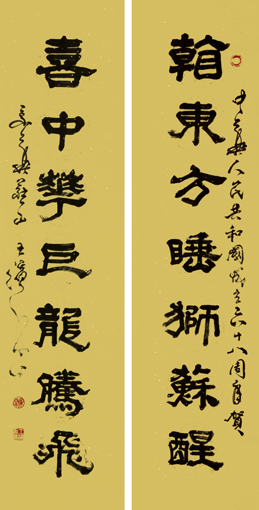 中華人民共和國成立六十八周年賀
翰東方睡獅蘇醒
喜中華巨龍騰飛